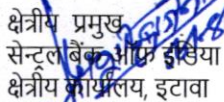 क्षेत्रीय प्रमुख
सेन्ट्रल बैंक ऑफ इंडिया
क्षेत्रीय कार्यालय, इटावा